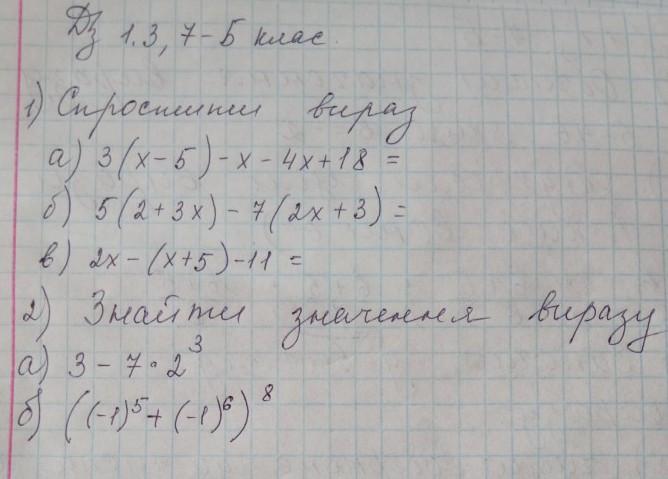 Дз 1.3, 7-Б клас.
1) Спростити вираз
а) 3(x-5)-x-4x+18=
б) 5(2+3x)-7(2x+3)=
в) 2x-(x+5)-11=
2) Знайти значення виразу
а) 3-7·2³
б) ((-1)⁵+(-1)⁶)⁸